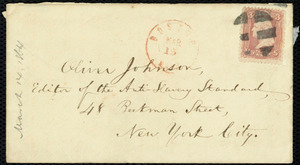 March 14, 1864
Oliver Johnson,
Editor of the Anti-Slavery Standard,
48 Beekman Street,
New York City.